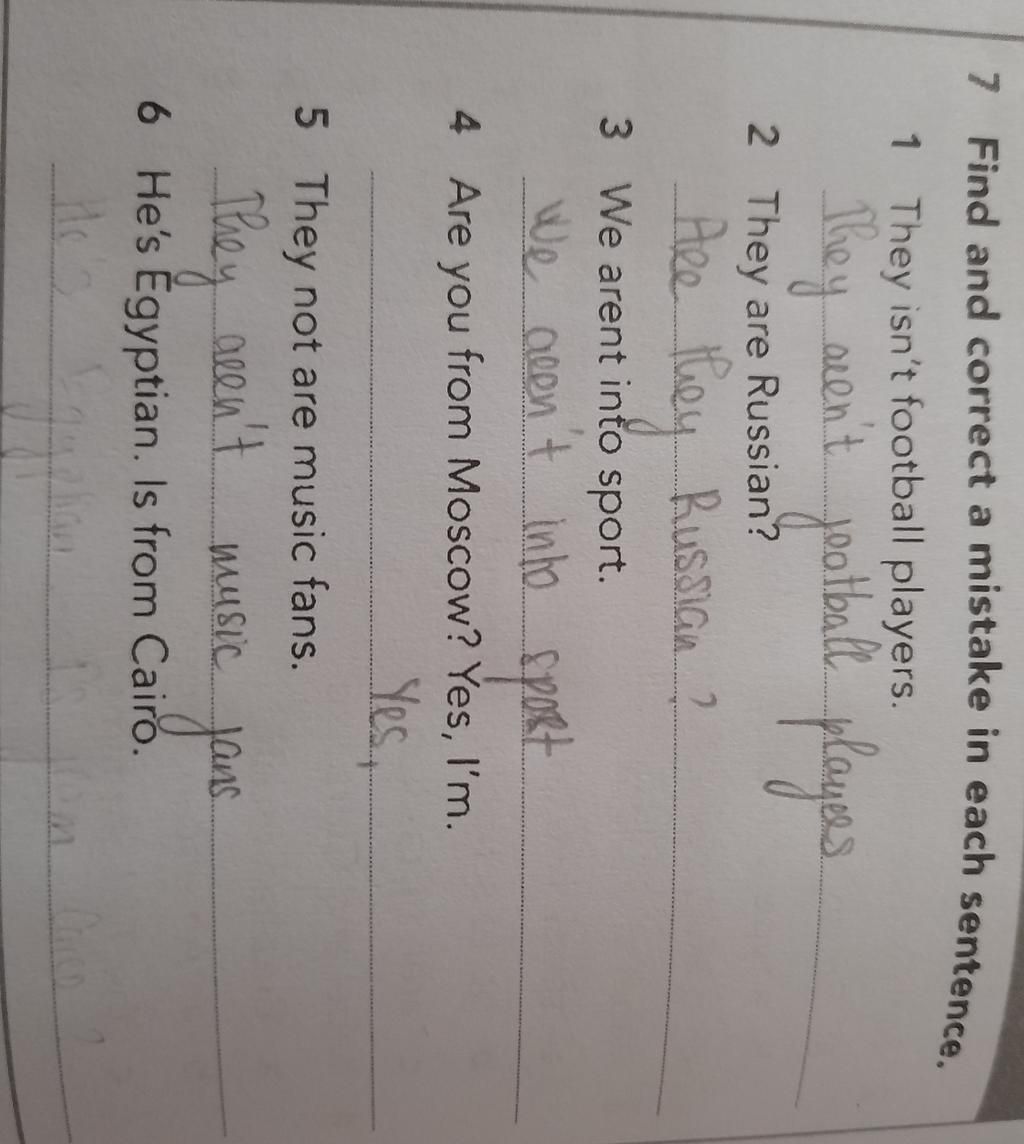 7 Find and correct a mistake in each sentence.
1 They isn't football players.
They aren't football players
2 They are Russian?
Are they Russian?
3 We arent into sport.
We aren't into sport
4 Are you from Moscow? Yes, I'm.
Yes,
5 They not are music fans.
They aren't music fans
6 He's Egyptian. Is from Cairo.
He's Egyptian from